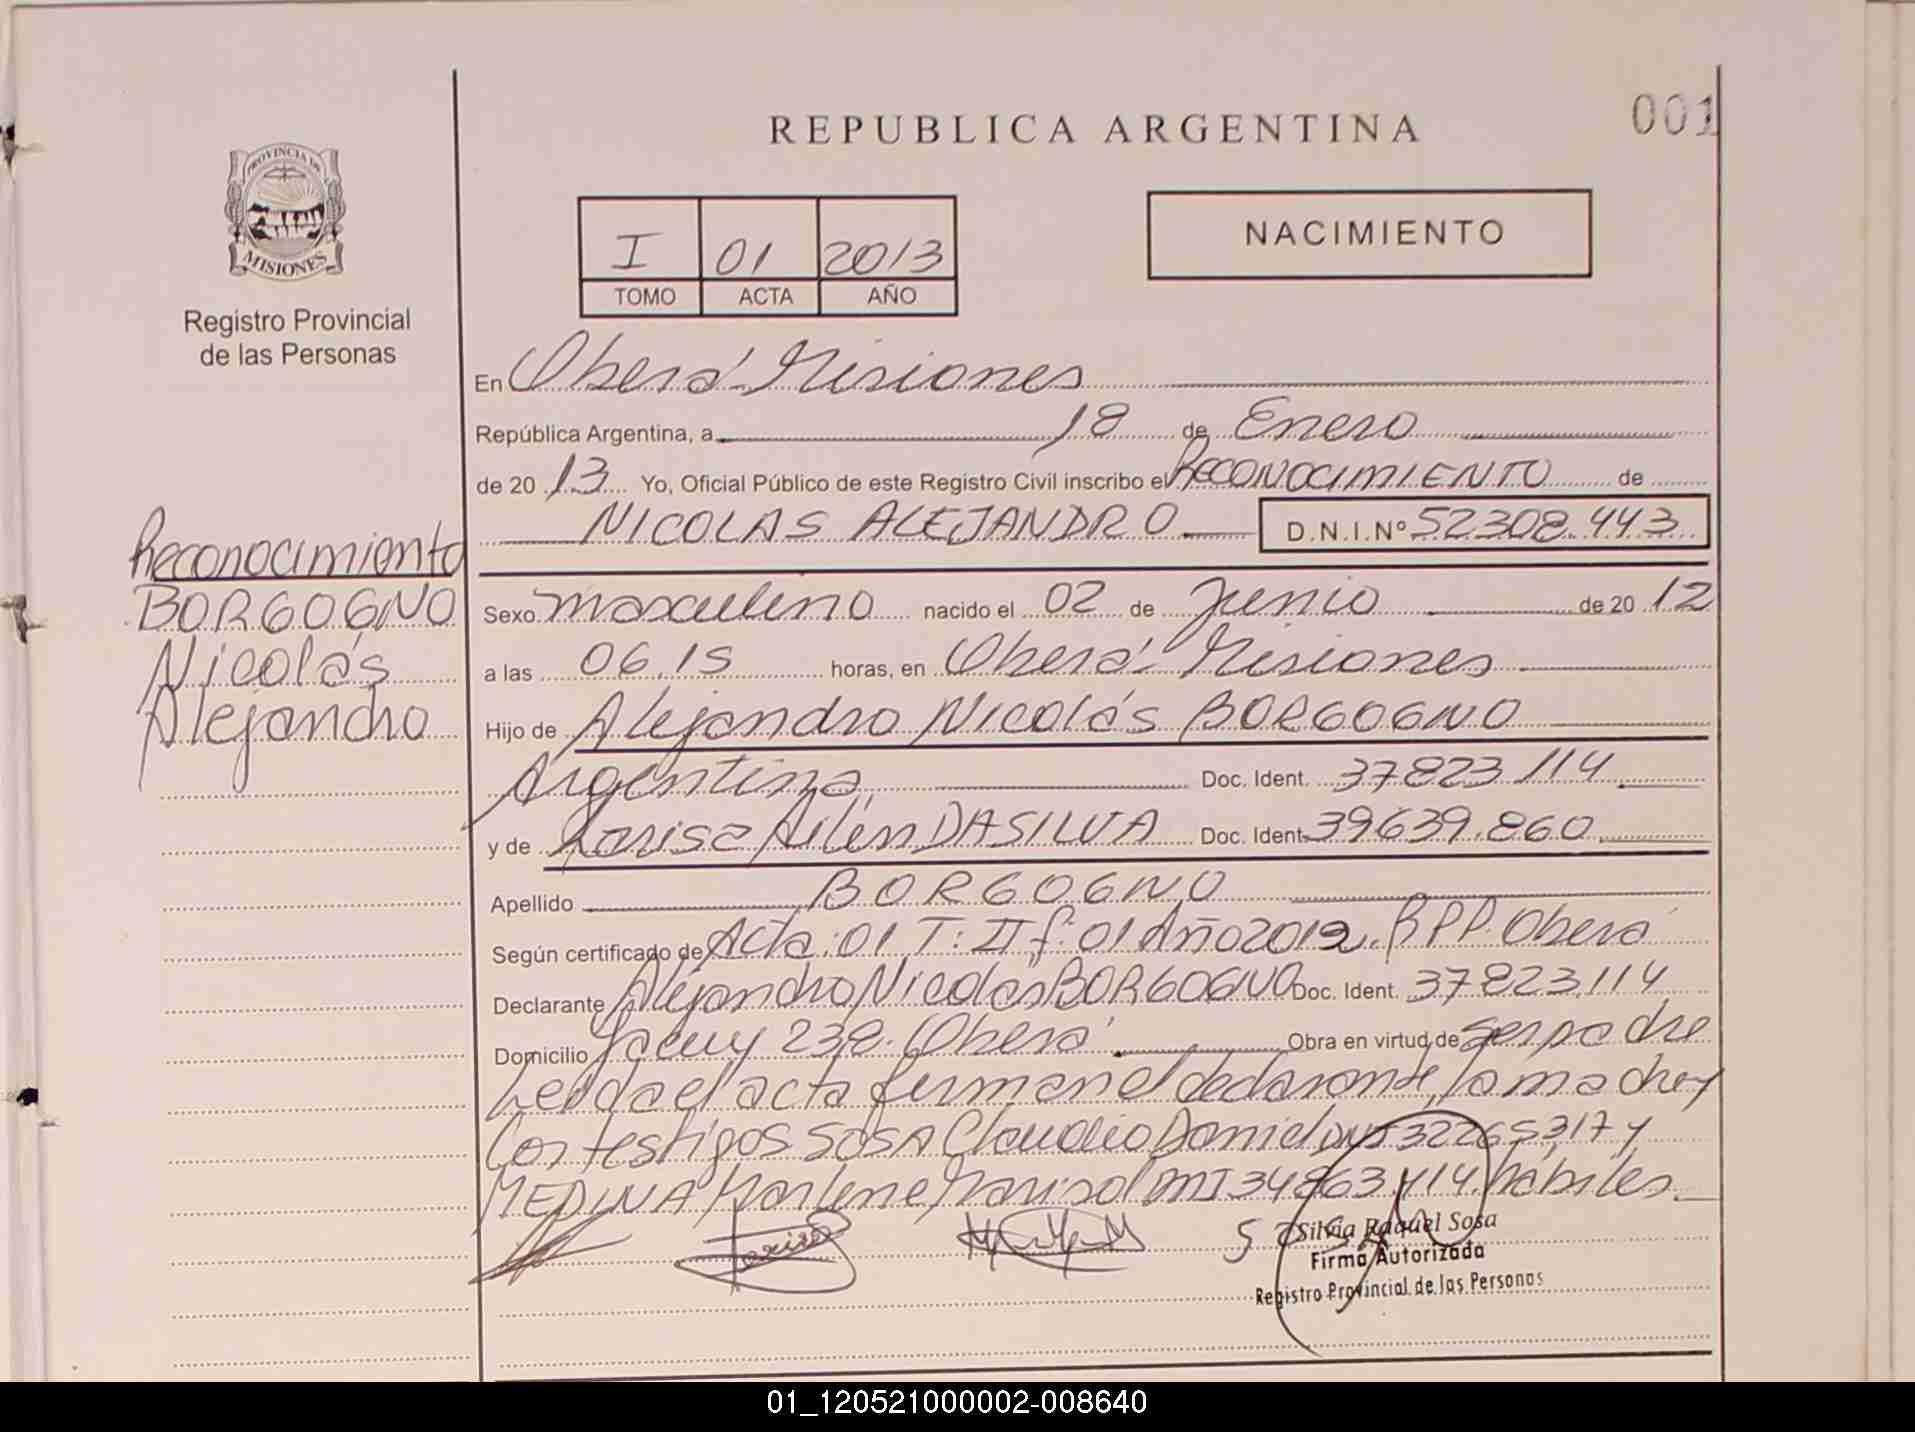 REPUBLICA ARGENTINA
001
PROVINCIA DE
MISIONES
Registro Provincial
de las Personas
I 01 2013
TOMO ACTA AÑO
NACIMIENTO
En Oberá - Misiones
República Argentina, a 18 de Enero
de 2013 Yo, Oficial Público de este Registro Civil inscribo el RECONOCIMIENTO de
NICOLAS ALEJANDRO D.N.I.Nº 52308.443
Reconocimiento
BORGOGNO
Nicolás
Alejandro
Sexo masculino nacido el 02 de Junio de 2012
a las 06.15 horas, en Oberá - Misiones
Hijo de Alejandro Nicolás BORGOGNO
Argentina Doc. Ident. 37823.114
y de Larisa Ailén DASILVA Doc. Ident. 39639.860
Apellido BORGOGNO
Según certificado de Acta: 01 T: II f: 01 Año 2012. RPP. Oberá
Declarante Alejandro Nicolás BORGOGNO Doc. Ident. 37823.114
Domicilio 238. Oberá Obra en virtud de ser padre
Leída el acta firman el declarante, la madre y
los testigos SOSA Claudio Daniel DNI 32265317 y
MEDINA Marlene Marisol 34863414 hábiles.
Silvia Raquel Sosa
Firma Autorizada
Registro Provincial de las Personas
01_120521000002-008640